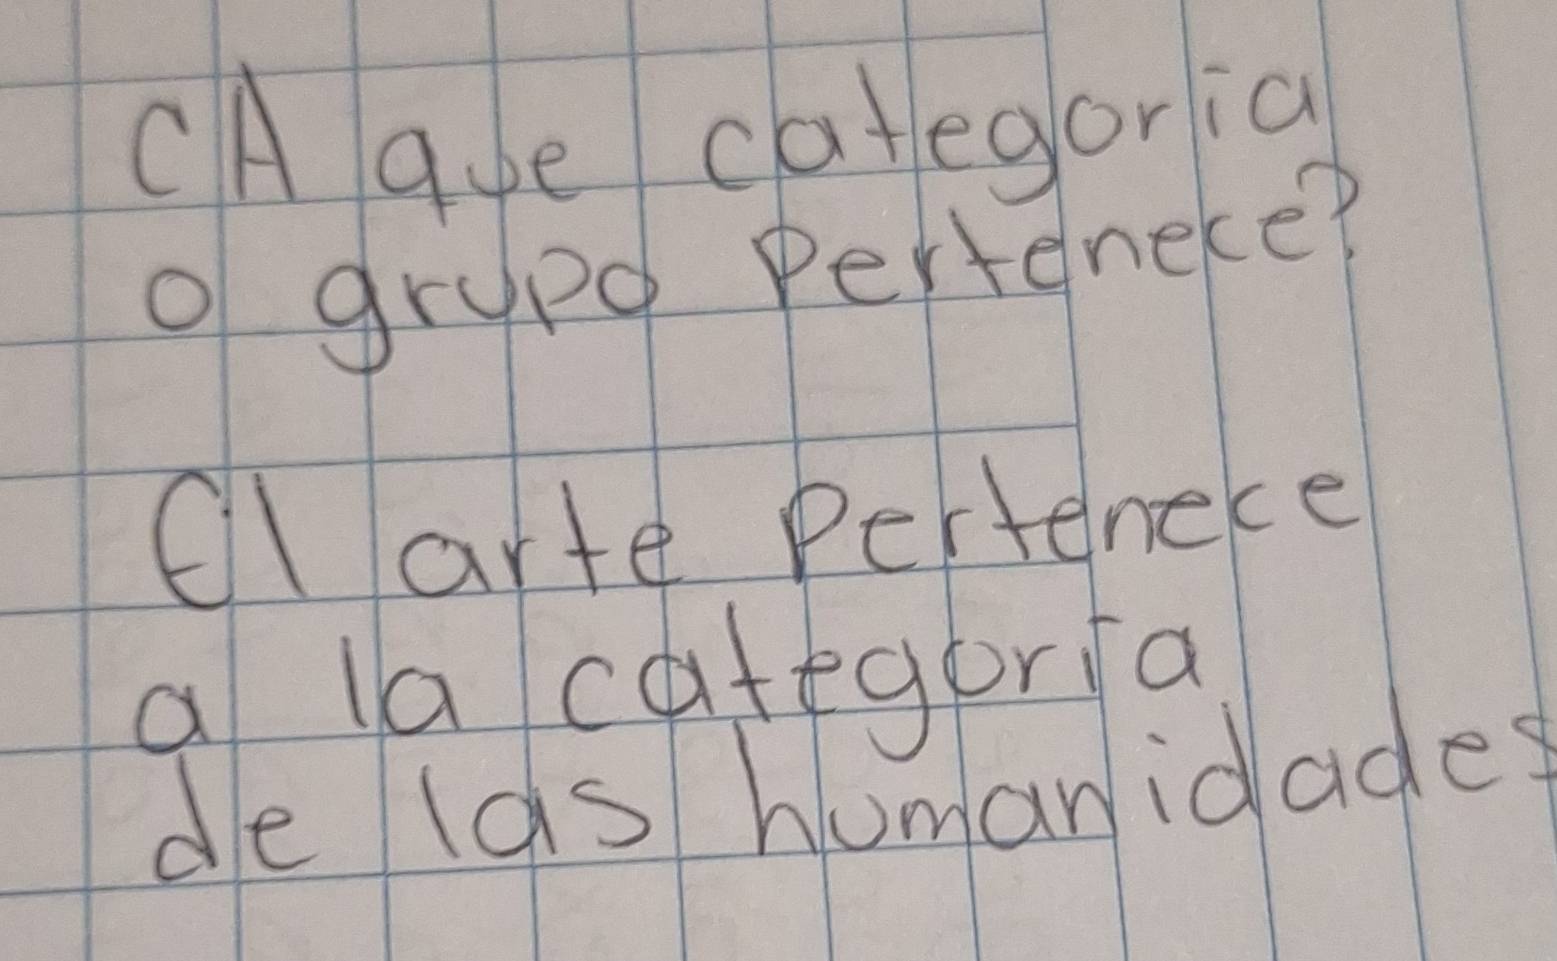 ¿A que categoria
o grupo Pertenece?
El arte Pertenece
a la categoría
de las humanidades